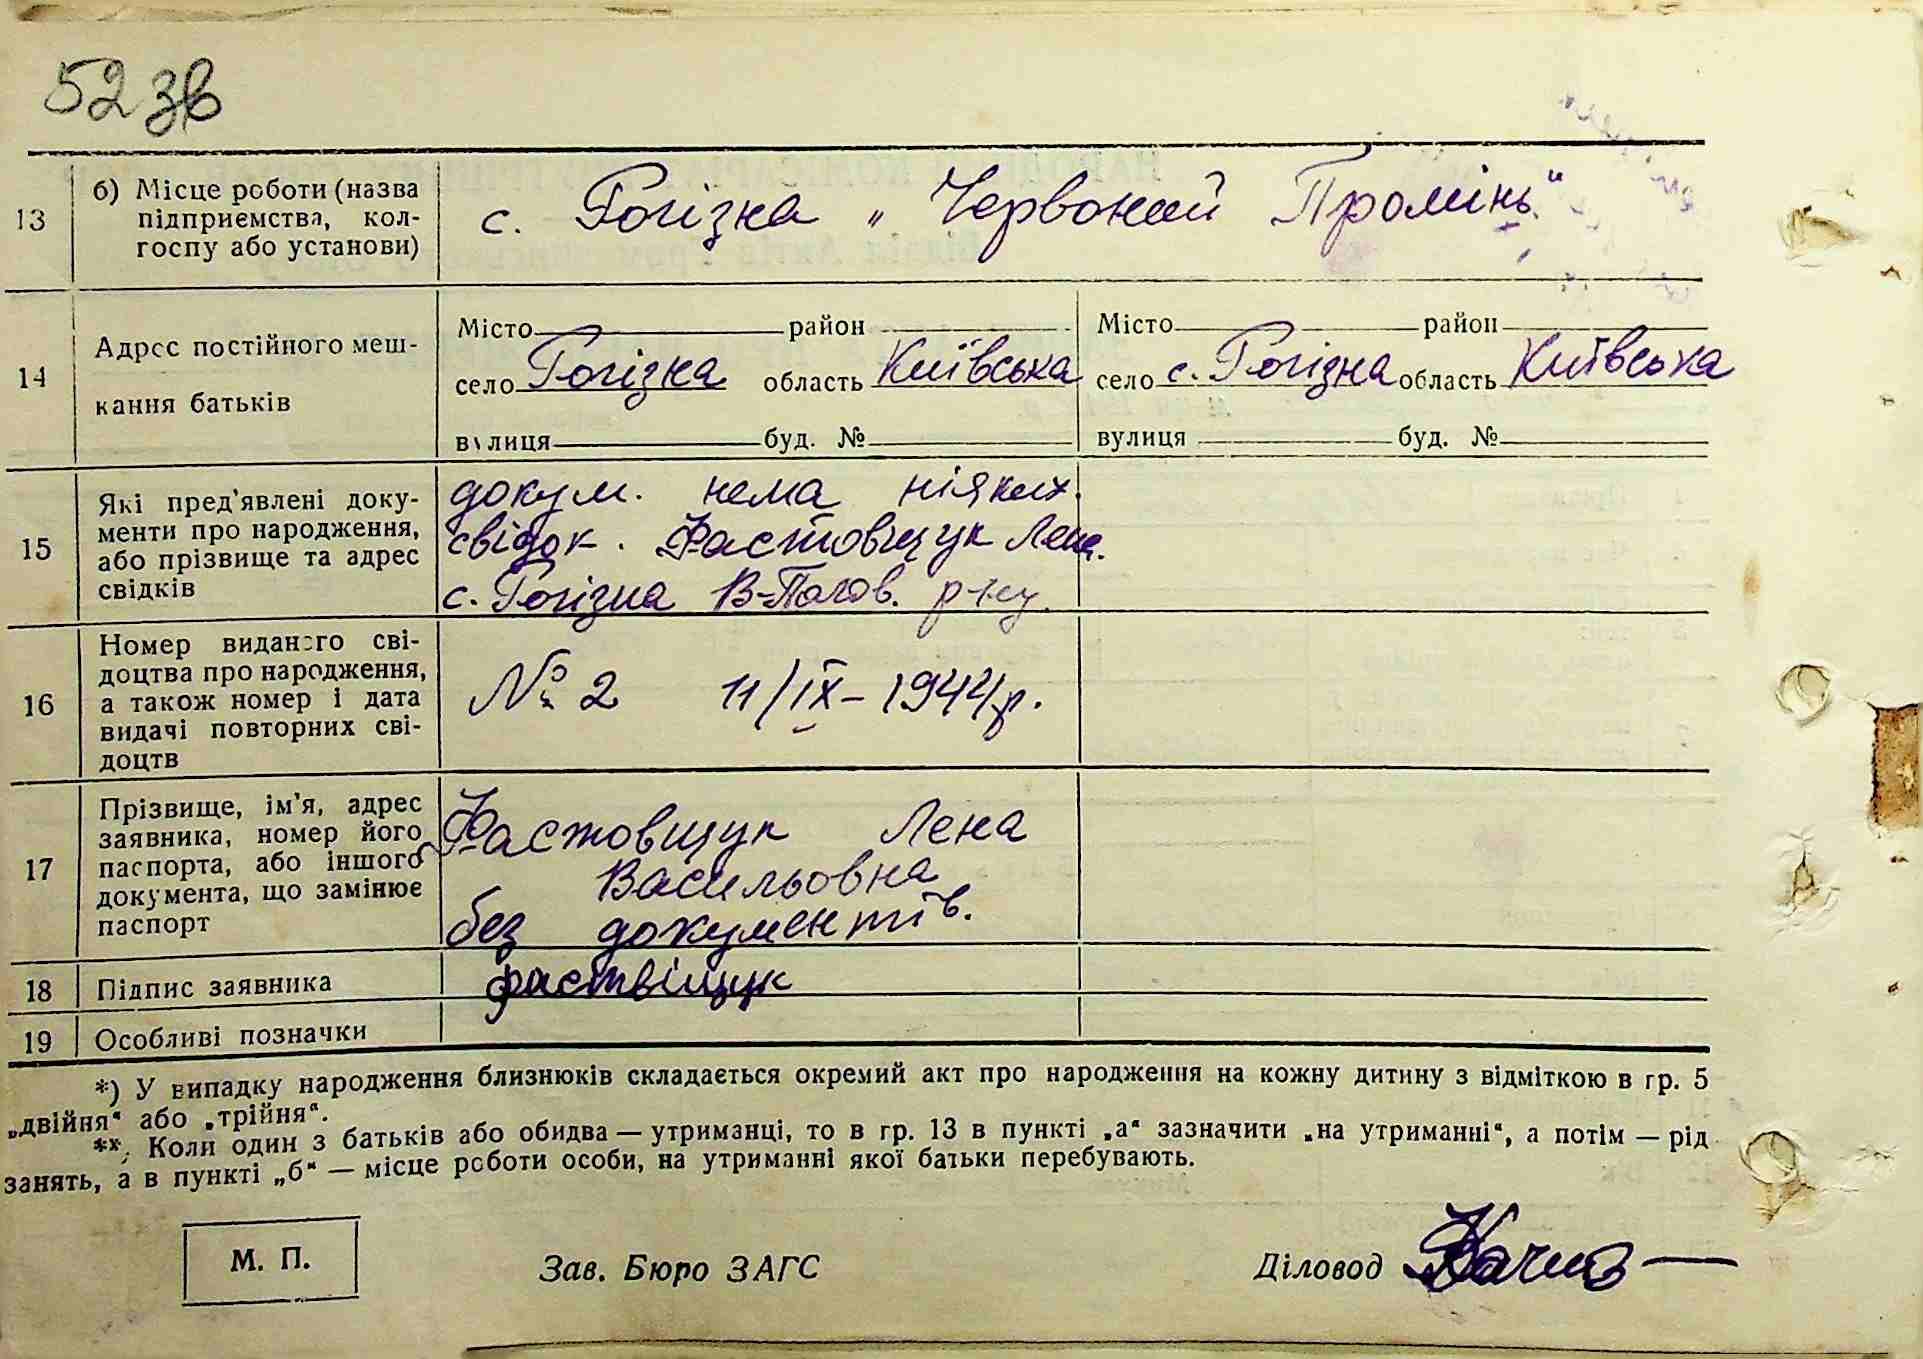 52 зв
13
б) Місце роботи (назва
підприємства, кол-
госпу або установи)
с. Рогізна „Червоний Промінь"
14
Адрес постійного меш-
кання батьків
Місто район
село Рогізна область Київська
вулиця буд. №
Місто район
село с. Рогізна область Київська
вулиця буд. №
15
Які пред'явлені доку-
менти про народження,
або прізвище та адрес
свідків
докум. нема ніяких.
свідок. Фастовщук Лена.
с. Рогізна В-Полов. р-ну.
16
Номер виданого сві-
доцтва про народження,
а також номер і дата
видачі повторних сві-
доцтв
№ 2 11/IX-1944 р.
17
Прізвище, ім'я, адрес
заявника, номер його
паспорта, або іншого
документа, що замінює
паспорт
Фастовщук Лена
Васильовна
без документів.
18
Підпис заявника
фаствіщук
19
Особливі позначки
*) У випадку народження близнюків складається окремий акт про народження на кожну дитину з відміткою в гр. 5
„двійня" або „трійня".
**. Коли один з батьків або обидва — утриманці, то в гр. 13 в пункті „а" зазначити „на утриманні", а потім — рід
занять, а в пункті „б" — місце роботи особи, на утриманні якої батьки перебувають.
М. П.
Зав. Бюро ЗАГС
Діловод